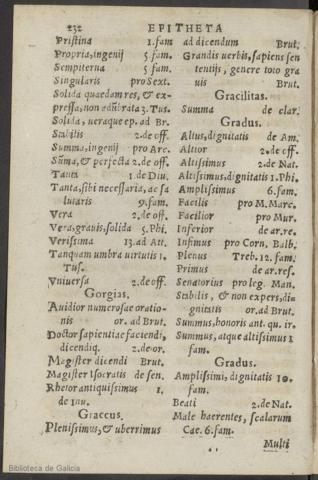 232
EPITHETA
Pristina 1.fam
Propria, ingenij 5.fam.
Sempiterna 5.fam.
Singularis pro Sext.
Solida quædam res, & ex-
pressa, non adũbrata 3. Tus.
Solida, ueraque ep. ad Br.
Stabilis 2.de off.
Summa, ingenij pro Arc.
Sũma, & perfecta 2.de off.
Tanta 1 de Diu.
Tanta, sibi necessaria, ac sa
lutaris 9.fam.
Vera 2.de off.
Vera, grauis, solida 5.Phi.
Verissima 13.ad Att.
Tanquam umbra uirtutis 1.
Tus.
Vniuersa 2.de off.
Gorgias.
Auidior numerosæ oratio-
nis or.ad Brut.
Doctor sapientiæ faciendi,
dicendiq. 2.de or.
Magister dicendi Brut.
Magister Isocratis de sen.
Rhetor antiquissimus 1.
de Inu.
Graccus.
Plenissimus, & uberrimus
ad dicendum Brut.
Grandis uerbis, sapiens sen
tentijs, genere toto gra
uis Brut.
Gracilitas.
Summa de clar.
Gradus.
Altus, dignitatis de Am.
Altior 2.de off.
Altissimus 2.de Nat.
Altissimus, dignitatis 1.Phi.
Amplissimus 6.fam.
Facilis pro M.Marc.
Facilior pro Mur.
Inferior de ar.re.
Infimus pro Corn. Balb.
Plenus Treb. 12. fam.
Primus de ar.res.
Senatorius pro leg. Man.
Stabilis, & non expers, di-
gnitatis or.ad Brut.
Summus, honoris ant. qu. ir.
Summus, atque altissimus 1
fam.
Gradus.
Amplissimi, dignitatis 10.
fam.
Beati 2.de Nat.
Male hærentes, scalarum
Cæ. 6.fam.
Multi
Biblioteca de Galicia